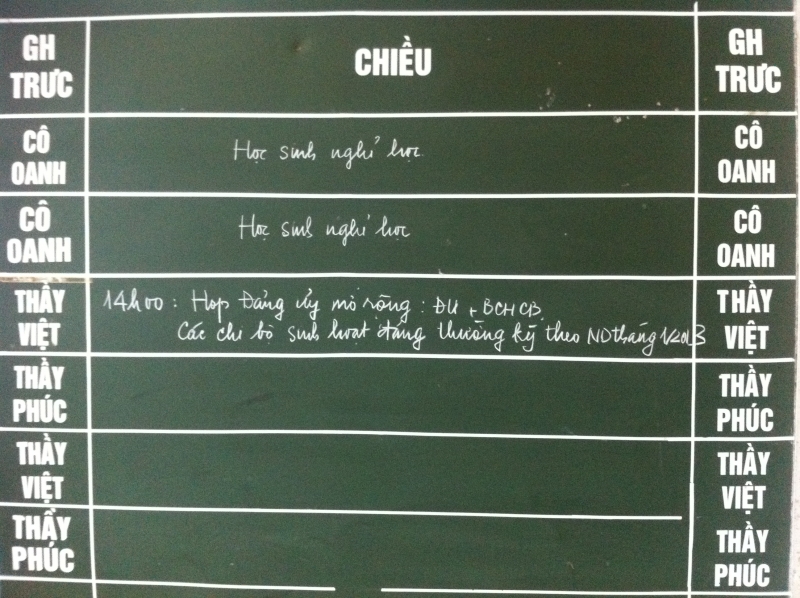 GH TRƯC
CHIỀU
GH TRƯC
CÔ OANH
Học sinh nghỉ học
CÔ OANH
CÔ OANH
Học sinh nghỉ học
CÔ OANH
THẦY VIỆT
14h00: Họp Đảng ủy mở rộng: ĐU + BCHCB.
Các chi bộ sinh hoạt đảng thường kỳ theo ND tháng 1/2013
THẦY VIỆT
THẦY PHÚC
THẦY PHÚC
THẦY VIỆT
THẦY VIỆT
THẦY PHÚC
THẦY PHÚC